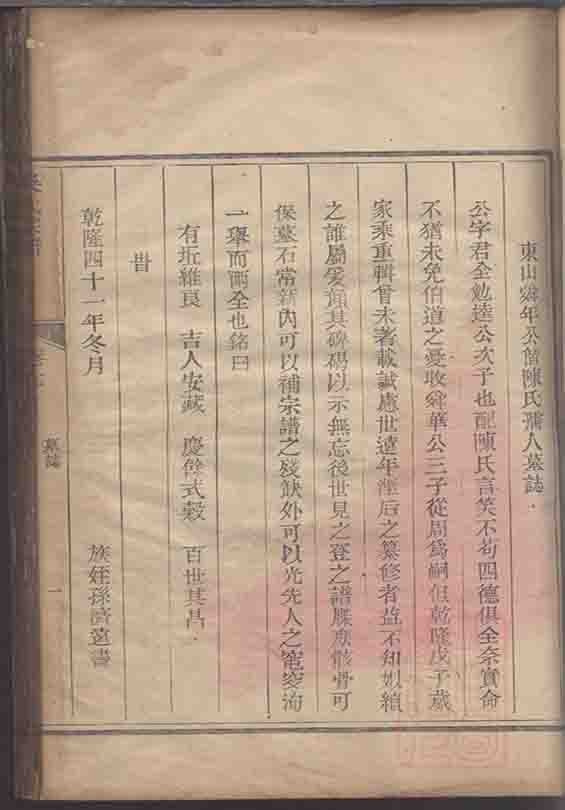 東山舜年公偕陳氏孺人墓誌
公字君全勉達公次子也配陳氏言笑不茍四德俱全奈實命
不猶未免伯道之憂收舜華公三子從周為嗣但乾隆戊子歲
家乘重輯曾未著載誠慮世遠年湮后之纂修者益不知似續
之誰屬爰頫其碑碣以示無忘後世見之登之譜牒庶骸骨可
保墓石常新內可以補宗譜之殘缺外可以光先人之窀穸洵
一舉而兩全也銘曰
有坵維良 吉人安藏 慶眘式穀 百世其昌
旹
乾隆四十一年冬月 族姪孫濟遠書
墓誌
一